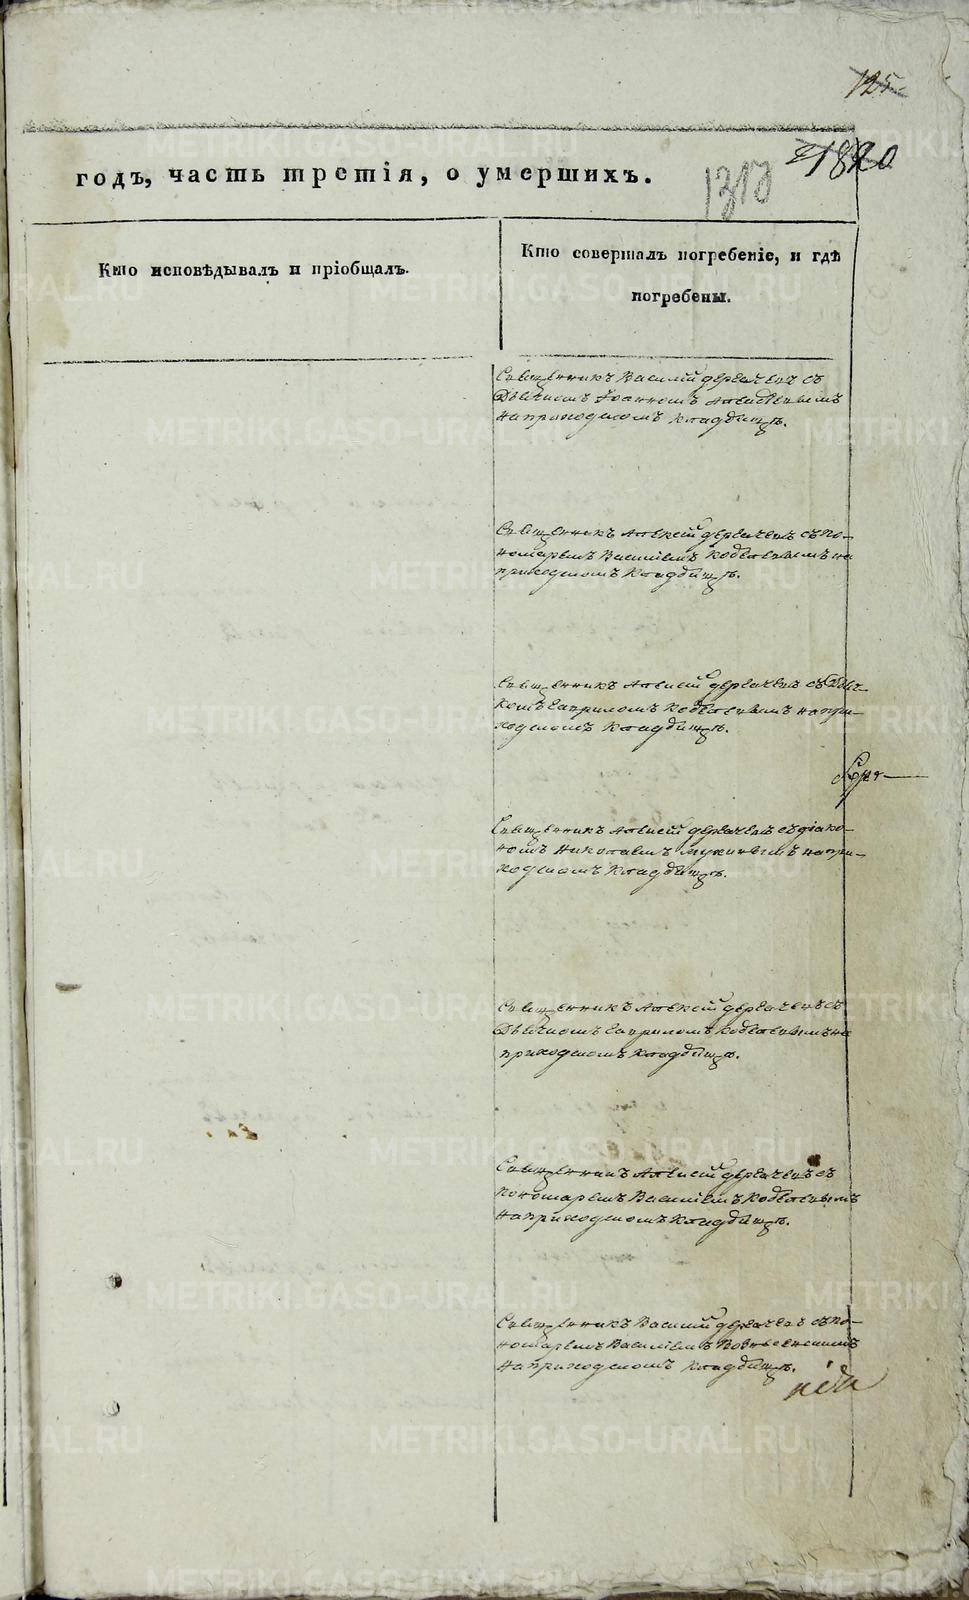 125
1820
годъ, часть третія, о умершихъ.
1313
Кто исповѣдывалъ и пріобщалъ.
Кто совершалъ погребеніе, и гдѣ
погребены.
Священникъ Василій Дергачевъ съ
Дьячкомъ Іоанномъ
на приходскомъ кладбищѣ.
Священникъ Алексій Дергачевъ съ по-
номаремъ Василіемъ на
приходскомъ кладбищѣ.
Священникъ Алексій Дергачевъ съ Дьяч-
комъ Гавриломъ на при-
ходскомъ кладбищѣ.
Священникъ Алексій Дергачевъ съ діако-
номъ Николаемъ на при-
ходскомъ кладбищѣ.
Священникъ Алексій Дергачевъ съ
Дьячкомъ Гавриломъ на
приходскомъ кладбищѣ.
Священникъ Алексій Дергачевъ съ
пономаремъ Василіемъ
на приходскомъ кладбищѣ.
Священникъ Василій Дергачевъ съ по-
номаремъ Василіемъ
на приходскомъ кладбищѣ.
METRIKI.GASO-URAL.RU